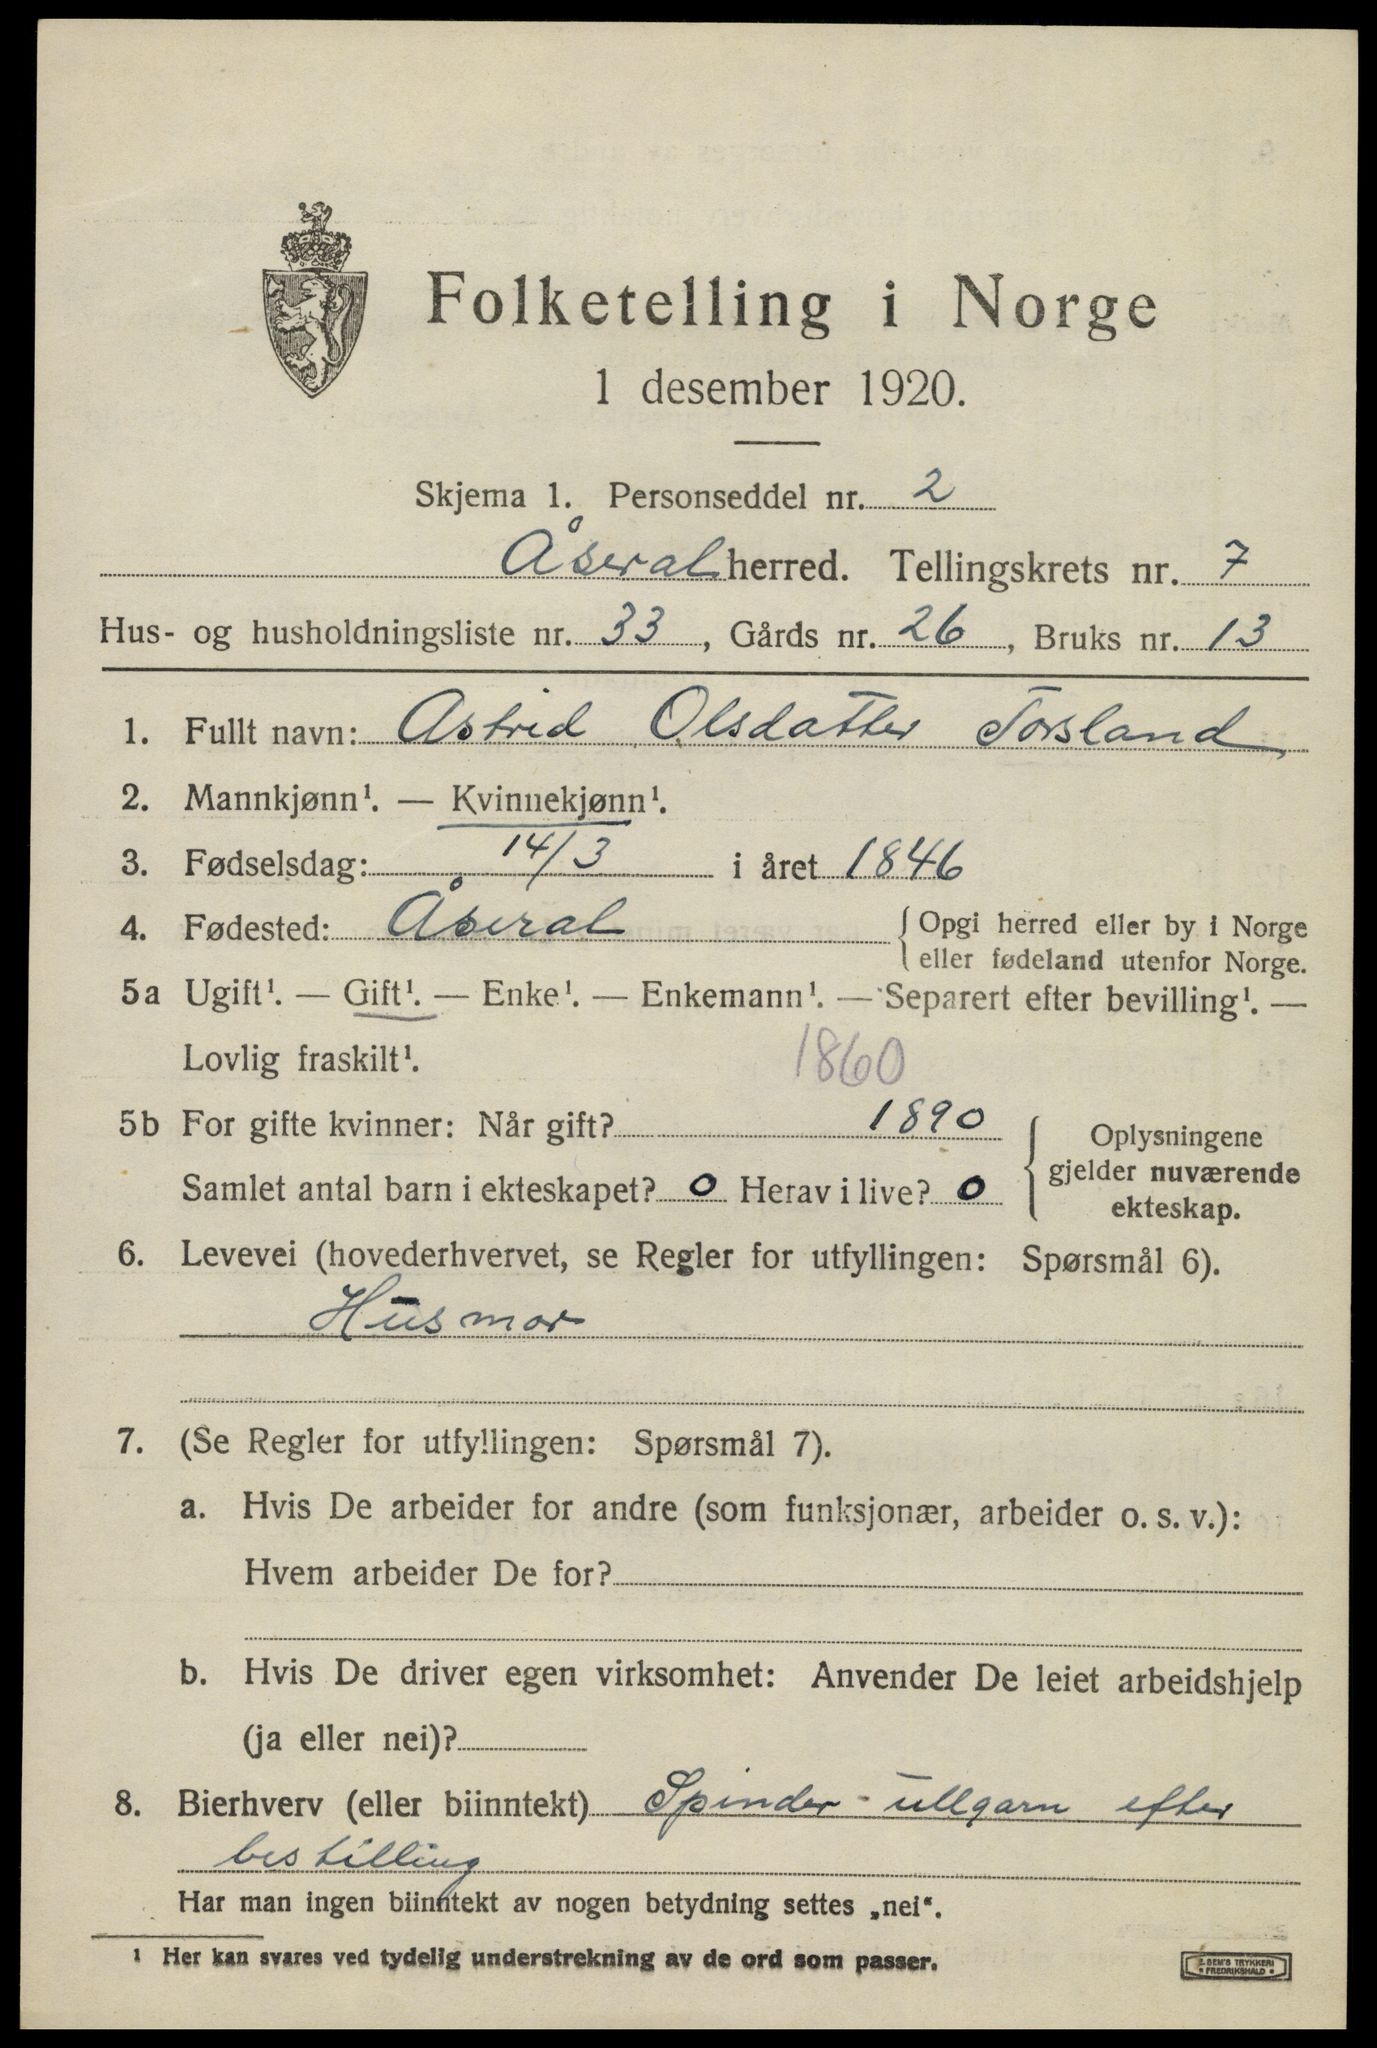 Folketelling i Norge
1 desember 1920.
Skjema 1. Personseddel nr. 2
Åseral herred. Tellingskrets nr. 7
Hus- og husholdningsliste nr. 33, Gårds nr. 26, Bruks nr. 13
1. Fullt navn: Astrid Olsdatter Torsland
2. Mannkjønn¹. — Kvinnekjønn¹.
3. Fødselsdag: 14/3 i året 1846
4. Fødested: Åseral { Opgi herred eller by i Norge
eller fødeland utenfor Norge.
5a Ugift¹. — Gift¹. — Enke¹. — Enkemann¹. — Separert efter bevilling¹. —
Lovlig fraskilt¹.
1860
5b For gifte kvinner: Når gift? 1890
Samlet antal barn i ekteskapet? 0 Herav i live? 0
Oplysningene
gjelder nuværende
ekteskap.
6. Levevei (hovederhvervet, se Regler for utfyllingen: Spørsmål 6).
Husmor
7. (Se Regler for utfyllingen: Spørsmål 7).
a. Hvis De arbeider for andre (som funksjonær, arbeider o. s. v.):
Hvem arbeider De for?
b. Hvis De driver egen virksomhet: Anvender De leiet arbeidshjelp
(ja eller nei)?
8. Bierhverv (eller biinntekt) Spinder ullgarn efter
bestilling
Har man ingen biinntekt av nogen betydning settes „nei“.
¹ Her kan svares ved tydelig understrekning av de ord som passer.
E. SEM'S TRYKKERI
FREDRIKSHALD